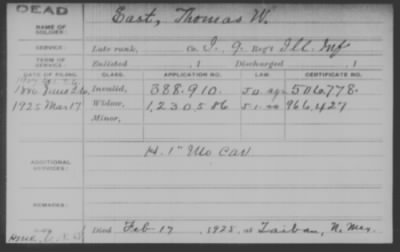 DEAD
NAME OF SOLDIER: East, Thomas W.
SERVICE: Late rank, Co. I. 9. Reg't Ill. Inf
TERM OF SERVICE: Enlisted , 1 Discharged , 1
DATE OF FILING. CLASS. APPLICATION NO. LAW. CERTIFICATE NO.
1880 June 26 Invalid, 388.910. 506.778.
1925 Mar 17 Widow, 1,230506 966,427
Minor,
ADDITIONAL SERVICES: H. 1" Mo Cav
REMARKS:
Died Feb 17, 1925, at Taiban, N. Mex.